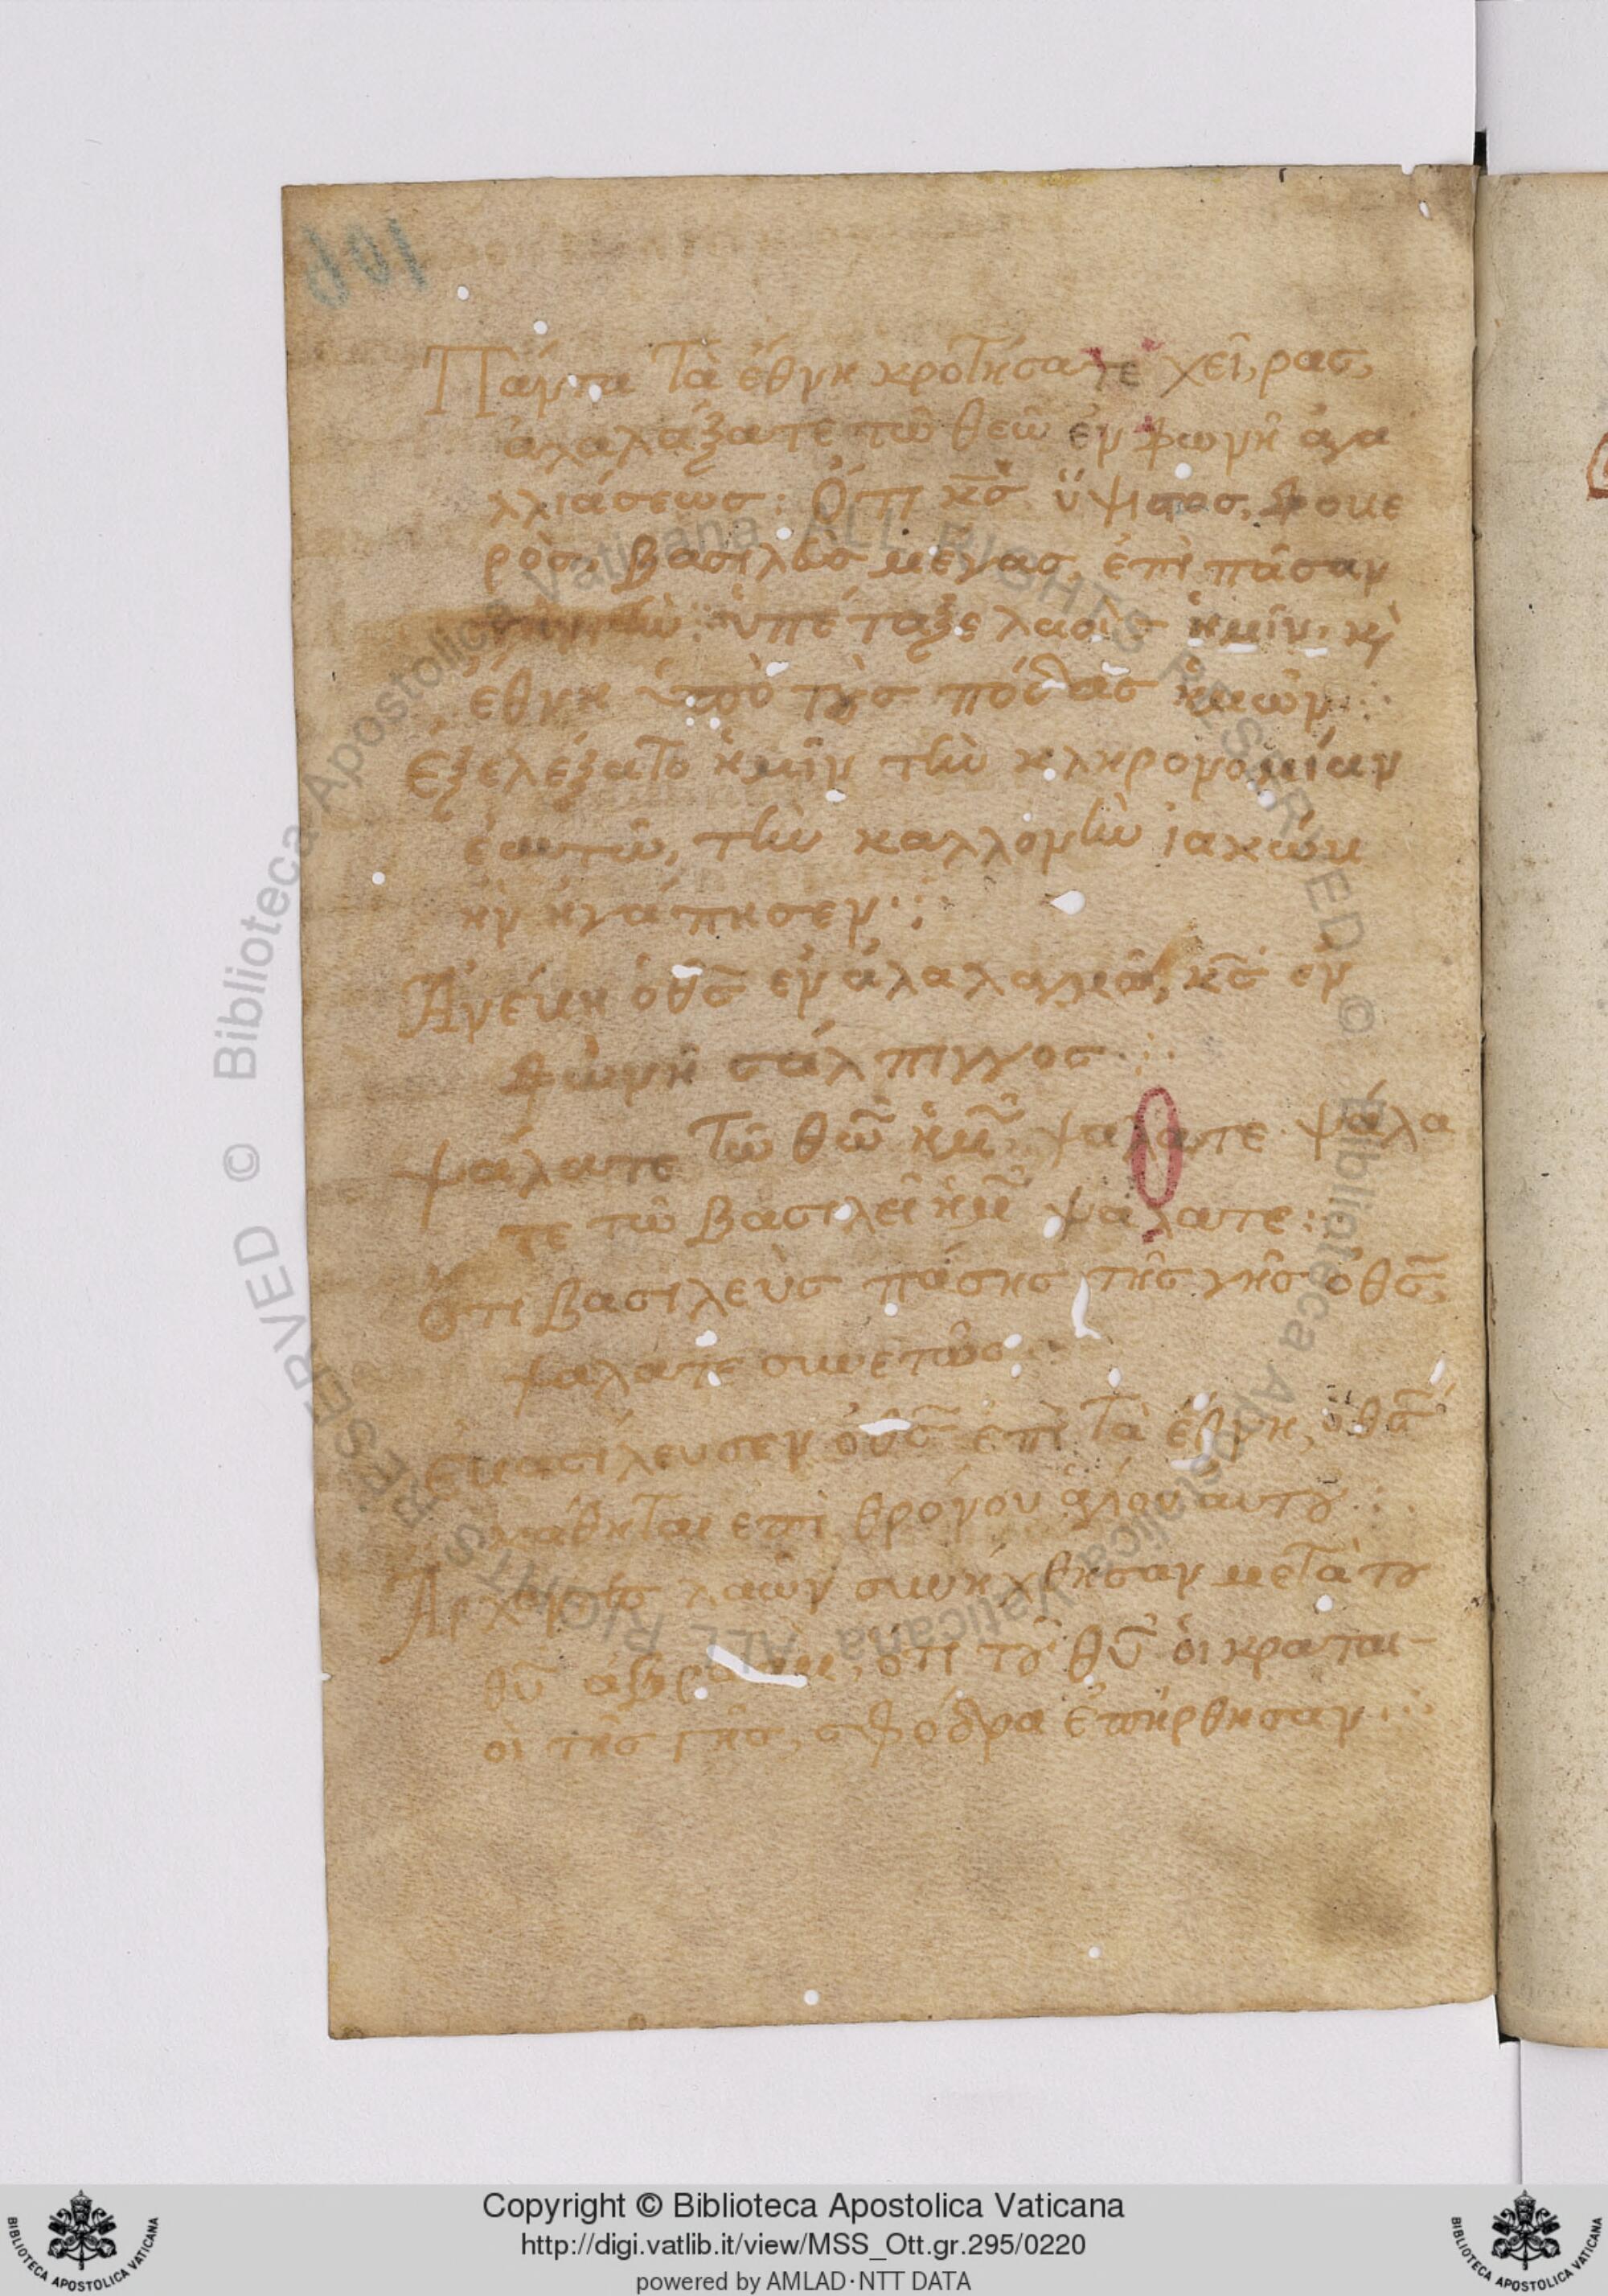 Πάντα τὰ ἔθνη κροτήσατε χεῖρας,
ἀλαλάξατε τῶ θεῶ ἐν φωνῆ ἀγα
λλιάσεως: Ὅτι κ̅ς̅ ὕψιστος, φοβε
ρὸς, βασιλεὺς μέγας, ἐπὶ πᾶσαν
ὑπέταξε λαοὺς ἡμῖν, κὶ
ἔθνη ὑπὸ τοὺς πόδας ἡμῶν:
Ἐξελέξατο ἡμῖν τὴν κληρονομίαν
ἑαυτῶ, τὴν καλλονὴν ἰακὼβ
ἣν ἠγάπησεν:
Ἀνέβη ὁ θ̅ς̅ ἐν ἀλαλαγμῶ, κ̅ς̅ ἐν
φωνῆ σάλπιγγος:
ψάλατε τῶ θ̅ω̅ ἡμ̅ ψάλατε ψάλα
τε τῶ βασιλεῖ ἡμ̅ ψάλατε:
Ὅτι βασιλεὺς πάσης τῆς γῆς ὁ θ̅ς̅,
ψάλατε συνετῶς:
ἐβασίλευσεν ὁ θ̅ς̅ ἐπὶ τὰ ἔθνη, ὁ θ̅ς̅
κάθηται ἐπὶ θρόνου ἁγίου αυτοῦ:
Ἄρχοντες λαῶν συνήχθησαν μετὰ τοῦ
θ̅υ̅ ἀβραάμ, ὅτι τοῦ θ̅υ̅ ὁι κραται-
οὶ τῆς γῆς, σφόδρα ἐπήρθησαν:
Copyright © Biblioteca Apostolica Vaticana
http://digi.vatlib.it/view/MSS_Ott.gr.295/0220
powered by AMLAD·NTT DATA
BIBLIOTECA APOSTOLICA VATICANA
BIBLIOTECA APOSTOLICA VATICANA
© Biblioteca Apostolica Vaticana ALL RIGHTS RESERVED © Biblioteca Apostolica Vaticana ALL RIGHTS RESERVED